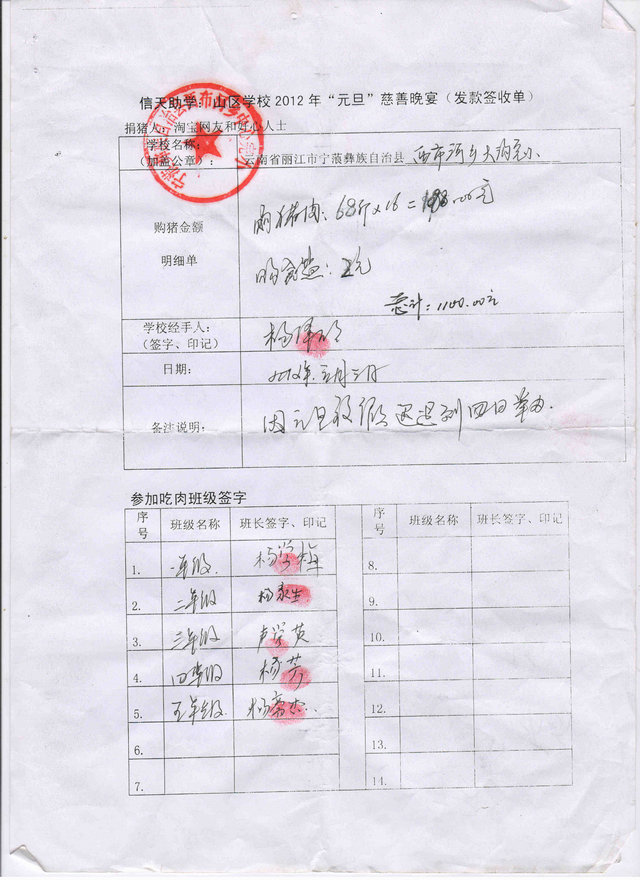 信天助学：山区学校2012年“元旦”慈善晚宴（发款签收单）
捐猪人：淘宝网友和好心人士
学校名称：
（加盖公章）：
云南省丽江市宁蒗彝族自治县
购猪金额
明细单
购猪肉：68斤×16=
元
总计：1100.00元
学校经手人：
（签字、印记）
日期：
备注说明：
因元旦放假 迟到四日举办.
参加吃肉班级签字
序号 班级名称 班长签字、印记 序号 班级名称 班长签字、印记
1. 一年级 杨学梅 8.
2. 二年级 杨永生 9.
3. 三年级 卢学英 10.
4. 四年级 杨芳 11.
5. 五年级 12.
6. 13.
7. 14.